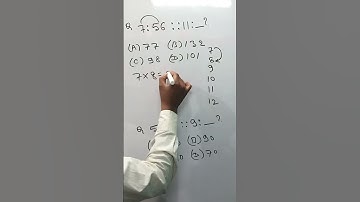 Q 7:56::11:_?
(A) 77 (B) 132
(C) 98 (D) 101
7×8=
7
8
9
10
11
12
Q 5 ::9:_?
(D) 90
0 (2) 70